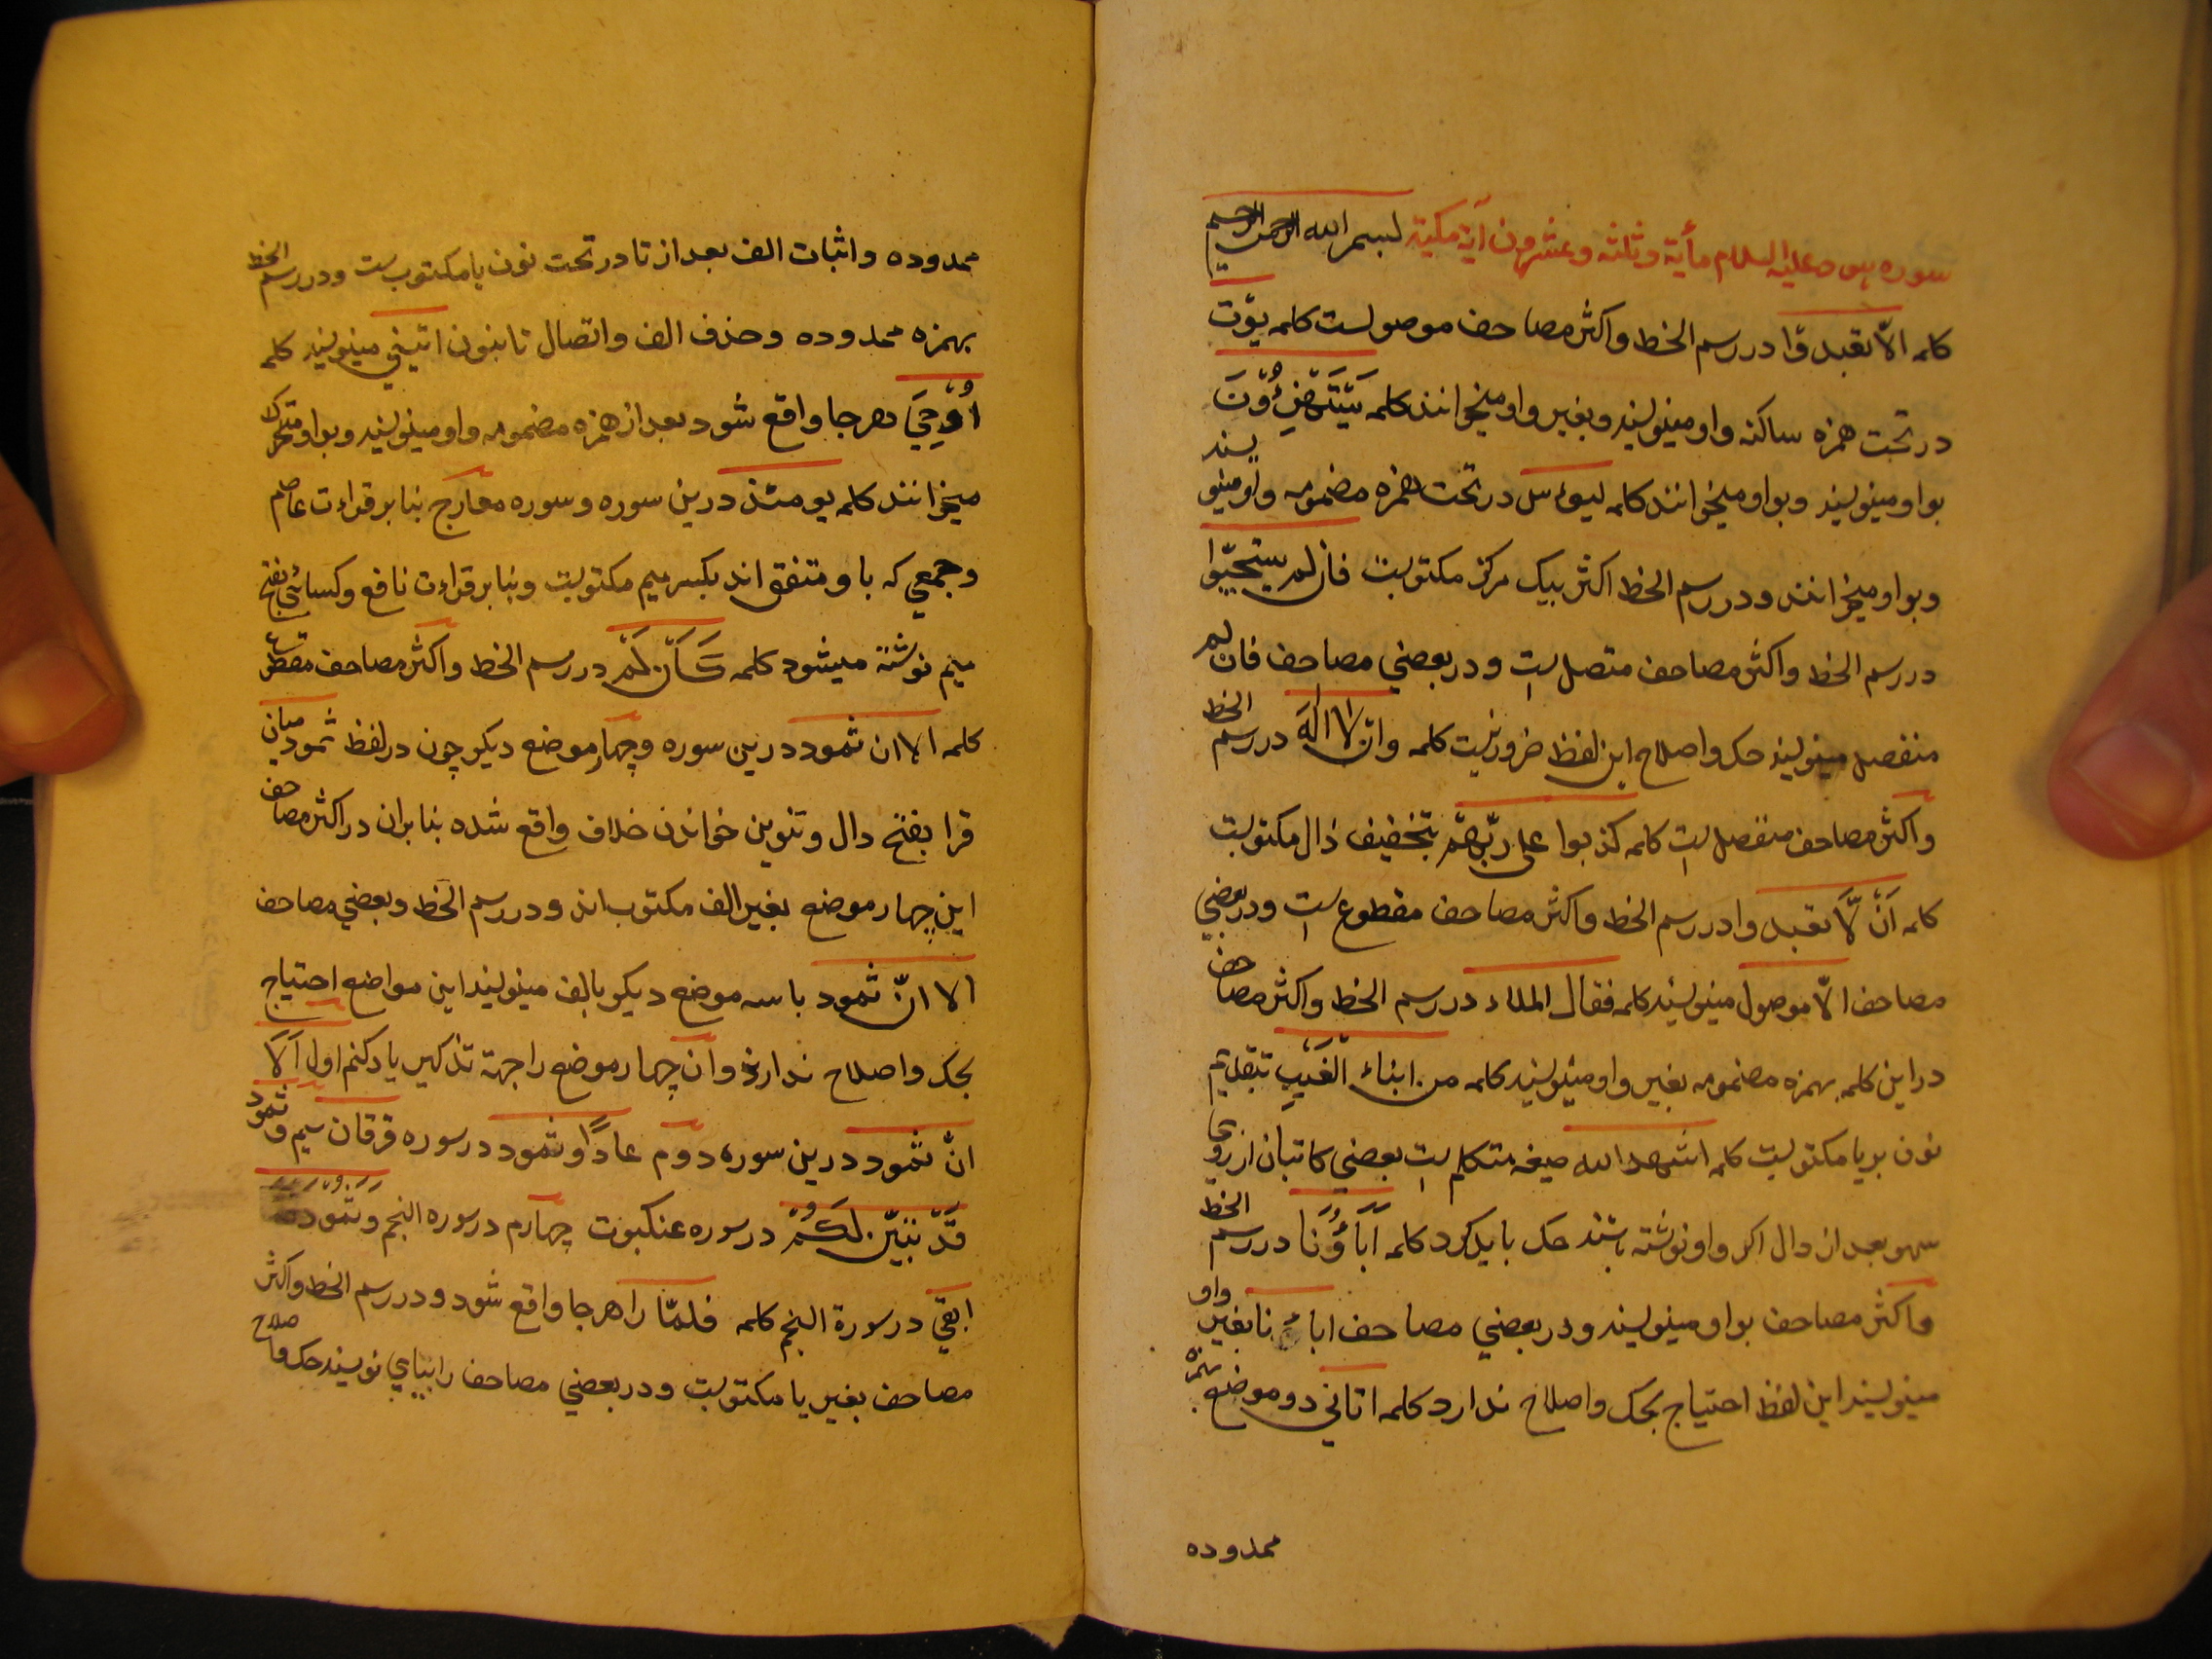 سوره هود عليه السلام مأية وثلثه وعشرون آية مكية بسم الله الرحمن الرحيم
كلمه الّا تعبدوا در رسم الخط واكثر مصاحف موصولست كلمه يؤت
در تحت همزه ساكنه واو مينويسند وبغير واو ميخوانند كلمه يستهزؤن
بواو مينويسند وبواو ميخوانند كلمه ليوءس در تحت همزه مضمومه واو مينويسند
وبواو ميخوانند ودر رسم الخط اكثر بيك مركز مكتوبست فالم يستجيبوا
در رسم الخط واكثر مصاحف متصل است ودر بعضي مصاحف فان لم
منفصل مينويسند حك واصلاح اين لفظ ضرور نيست كلمه وان لا اله در رسم الخط
واكثر مصاحف منفصل است كلمه كذبوا على ربهم بتخفيف ذال مكتوبست
كلمه ان لا تعبدوا در رسم الخط واكثر مصاحف مقطوع است ودر بعضي
مصاحف الّا موصول مينويسند كلمه فقال الملاء در رسم الخط واكثر مصاحف
در اين كلمه بهمزه مضمومه بغير واو مينويسند كلمه من ابناء الغيب بتقديم
نون بر يا مكتوبست كلمه اشهد الله صيغه متكلم است بعضي كاتبان از روي
سهو بعد از دال اكر واو نوشته باشند حك بايد كرد كلمه اباؤنا در رسم الخط
واكثر مصاحف بواو مينويسند ودر بعضي مصاحف اباءنا بغير واو
مينويسند اين لفظ احتياج بحك واصلاح ندارد كلمه اتاني دو موضع بهمزه
ممدوده
ممدوده واثبات الف بعد از تا در تحت نون يا مكتوبست ودر رسم الخط
بهمزه ممدوده وحذف الف واتصال تا بنون اتيني مينويسند كلمه
اوحي هر جا واقع شود بعد از همزه مضمومه واو مينويسند وبواو متحرك
ميخوانند كلمه يومئذ درين سوره وسوره معارج بنابر قراءت عاصم
وجمعي كه با و متفق اند بكسر ميم مكتوبست وبنابر قراءت نافع وكسائي بفتح
ميم نوشته ميشود كلمه كان لم در رسم الخط واكثر مصاحف مقطوعست
كلمه الا ان ثمود درين سوره وچهار موضع ديكر چون در لفظ ثمود ميان
قرا بفتح دال وتنوين خواندن خلاف واقع شده بنابران در اكثر مصاحف
اين چهار موضع بغير الف مكتوب اند ودر رسم الخط وبعضي مصاحف
الا انّ ثمود با سه موضع ديكر بالف مينويسند اين مواضع احتياج
بحك واصلاح ندارد وان چهار موضع را جهة تذكير ياد كنم اول الا
انّ ثمود درين سوره دوم عادًا وثمود در سوره فرقان سيم وثمود
قد تبيّن لكم در سوره عنكبوت چهارم در سوره النجم وثمود
ابقي در سورة النجم كلمه فلمّا را هر جا واقع شود ودر رسم الخط واكثر
مصاحف بغير يا مكتوبست ودر بعضي مصاحف را بياي نويسند حك واصلاح